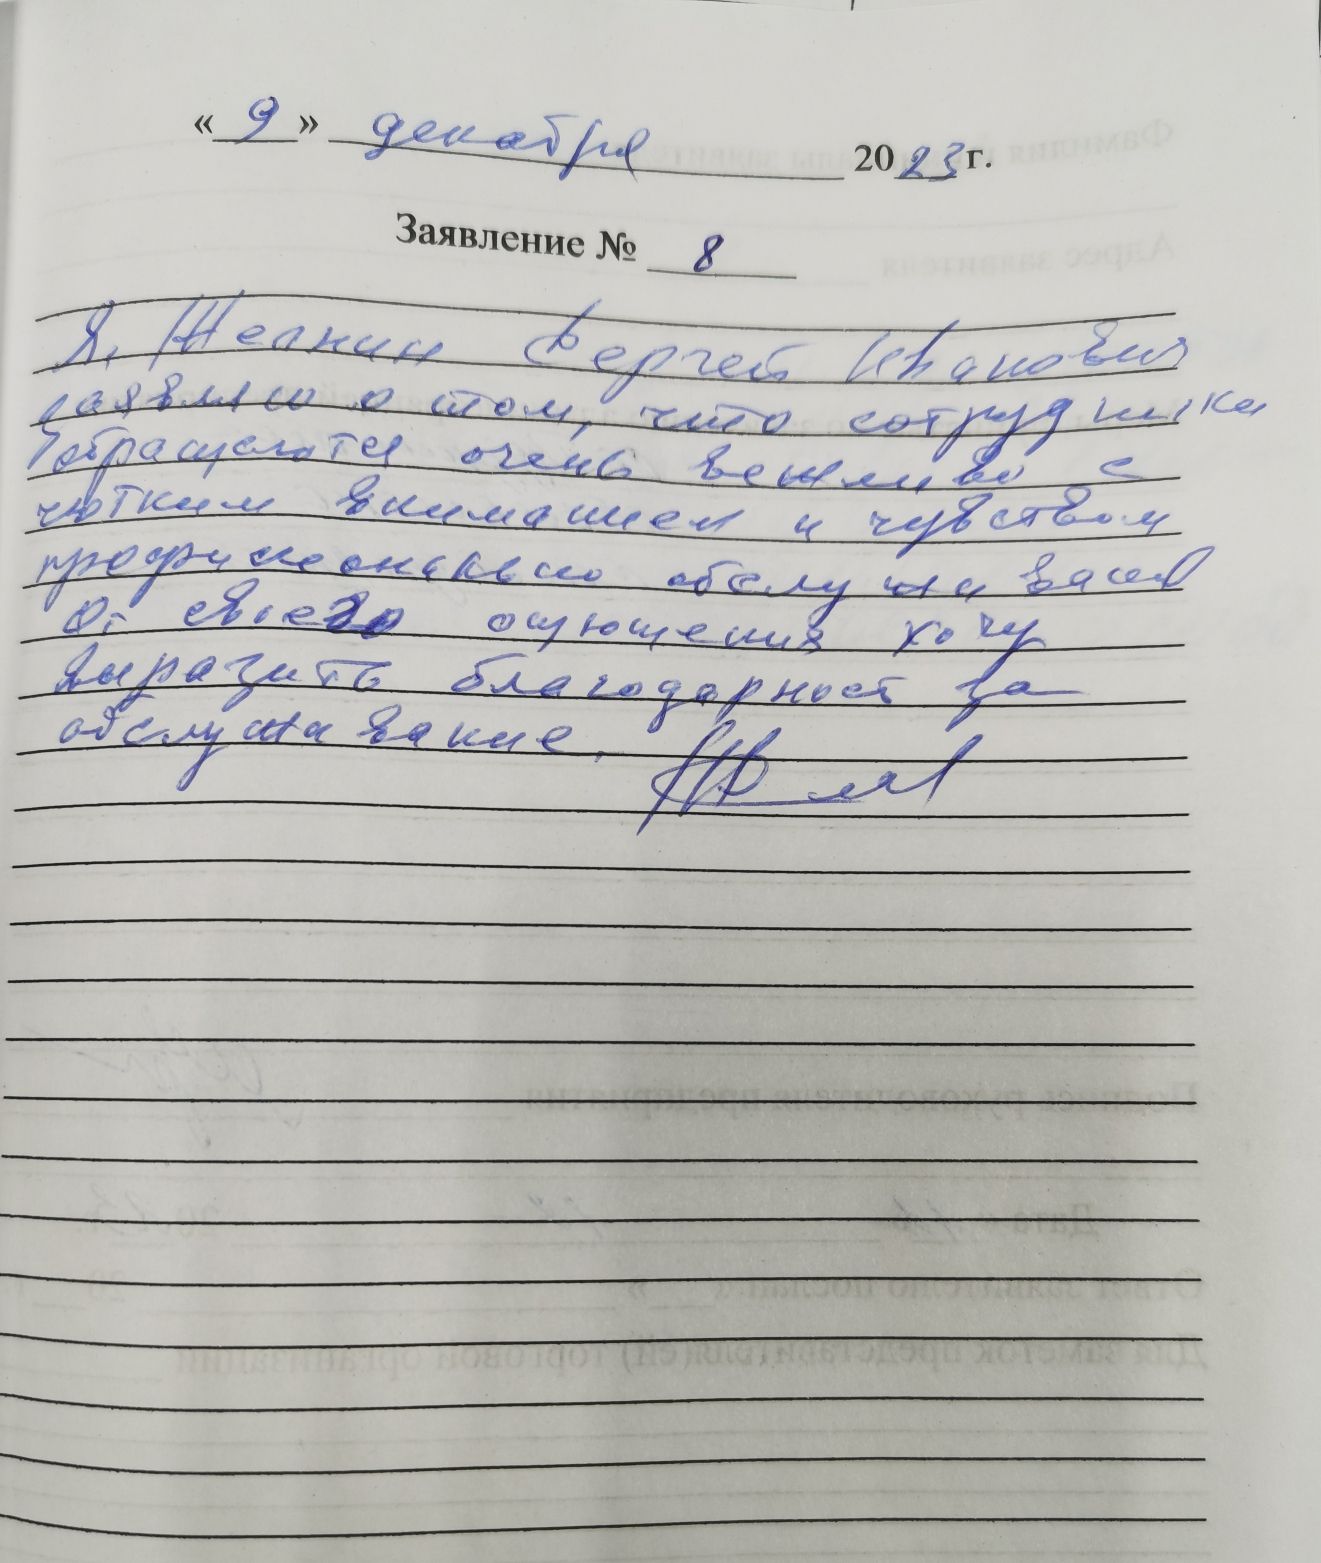 « 9 » декабря 2023 г.
Заявление № 8
Я, Сергей Иванович
заявляю о том, что сотрудники
обращаются очень вежливо с
чютким вниманием и чувством
профисеонально обслуживает
От своего ощющения хочу
выразить благодарност за
обслуживание.